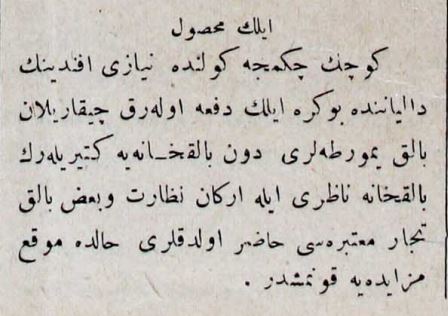 ايلك محصول
كوچك چكمجه كولنده نيازى افندينك
داليانندە بوكره ايلك دفعه اوله‌رق چيقاريلان
بالق يمورطه‌لرى دون بالقخـانه‌يه كتيريله‌رك
بالقخانه ناظرى ايله اركان نظارت وبعض بالق
تجار معتبره‌سى حاضر اولدقلرى حالده موقع
مزايده‌يه قونمشدر .